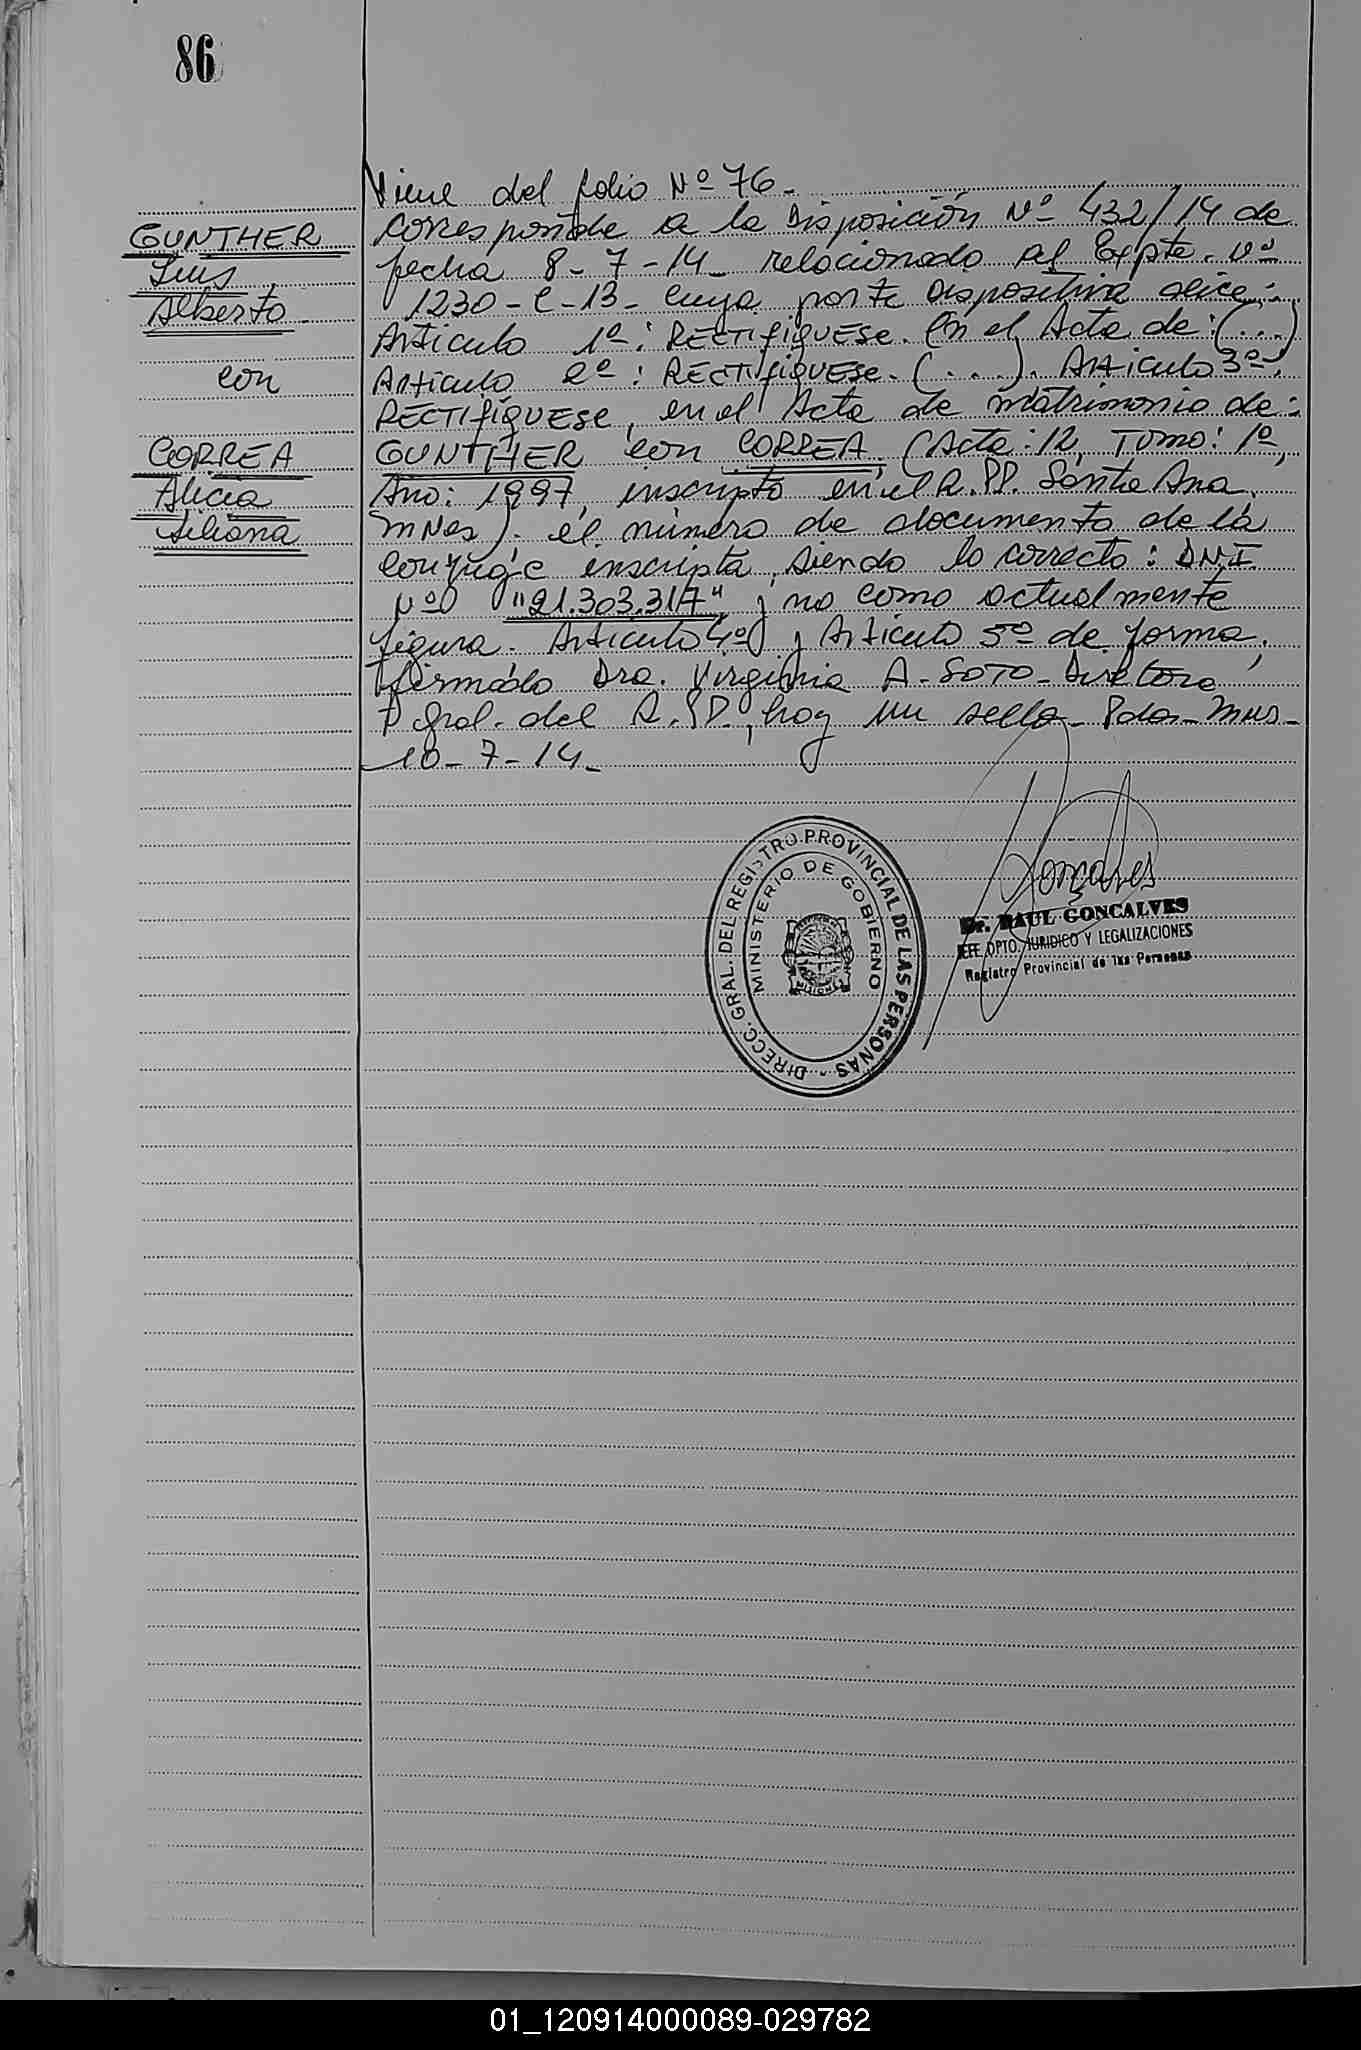 86
Viene del folio Nº 76.-
GUNTHER
Luis
Alberto
con
CORREA
Alicia
Liliana
Corresponde a la Disposición Nº 432/14 de
fecha 8-7-14- relacionado al Expte. Nº
1230-C-13- cuya parte dispositiva dice:
Articulo 1º: RECTIFIQUESE. En el Acta de: (...)
Articulo 2º: RECTIFIQUESE. (...). Articulo 3º:
RECTIFIQUESE, en el Acta de matrimonio de:
GUNTHER con CORREA, (Acta: 12, Tomo: 1º,
Año: 1997, inscripto en el R.PP. Santa Ana,
Mnes). el número de documento de la
conyuge inscripta, siendo lo correcto: D.N.I.
Nº "21.303.317" y no como actualmente
figura. Articulo 4º y Articulo 5º de forma.
Firmado Dra. Virginia A. SOTO- Directora
Gral. del R.PP., hay un sello- Pdas- Mnes-
10-7-14.-
DIRECC. GRAL. DEL REGISTRO PROVINCIAL DE LAS PERSONAS
MINISTERIO DE GOBIERNO
MISIONES
Gonçalves
Dr. RAUL GONCALVES
JEFE DPTO. JURIDICO Y LEGALIZACIONES
Registro Provincial de las Personas
01_120914000089-029782